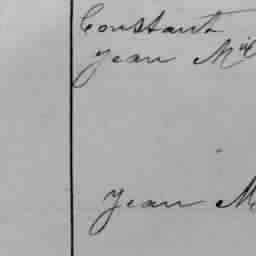 Constant
Jean Mil
Jean M